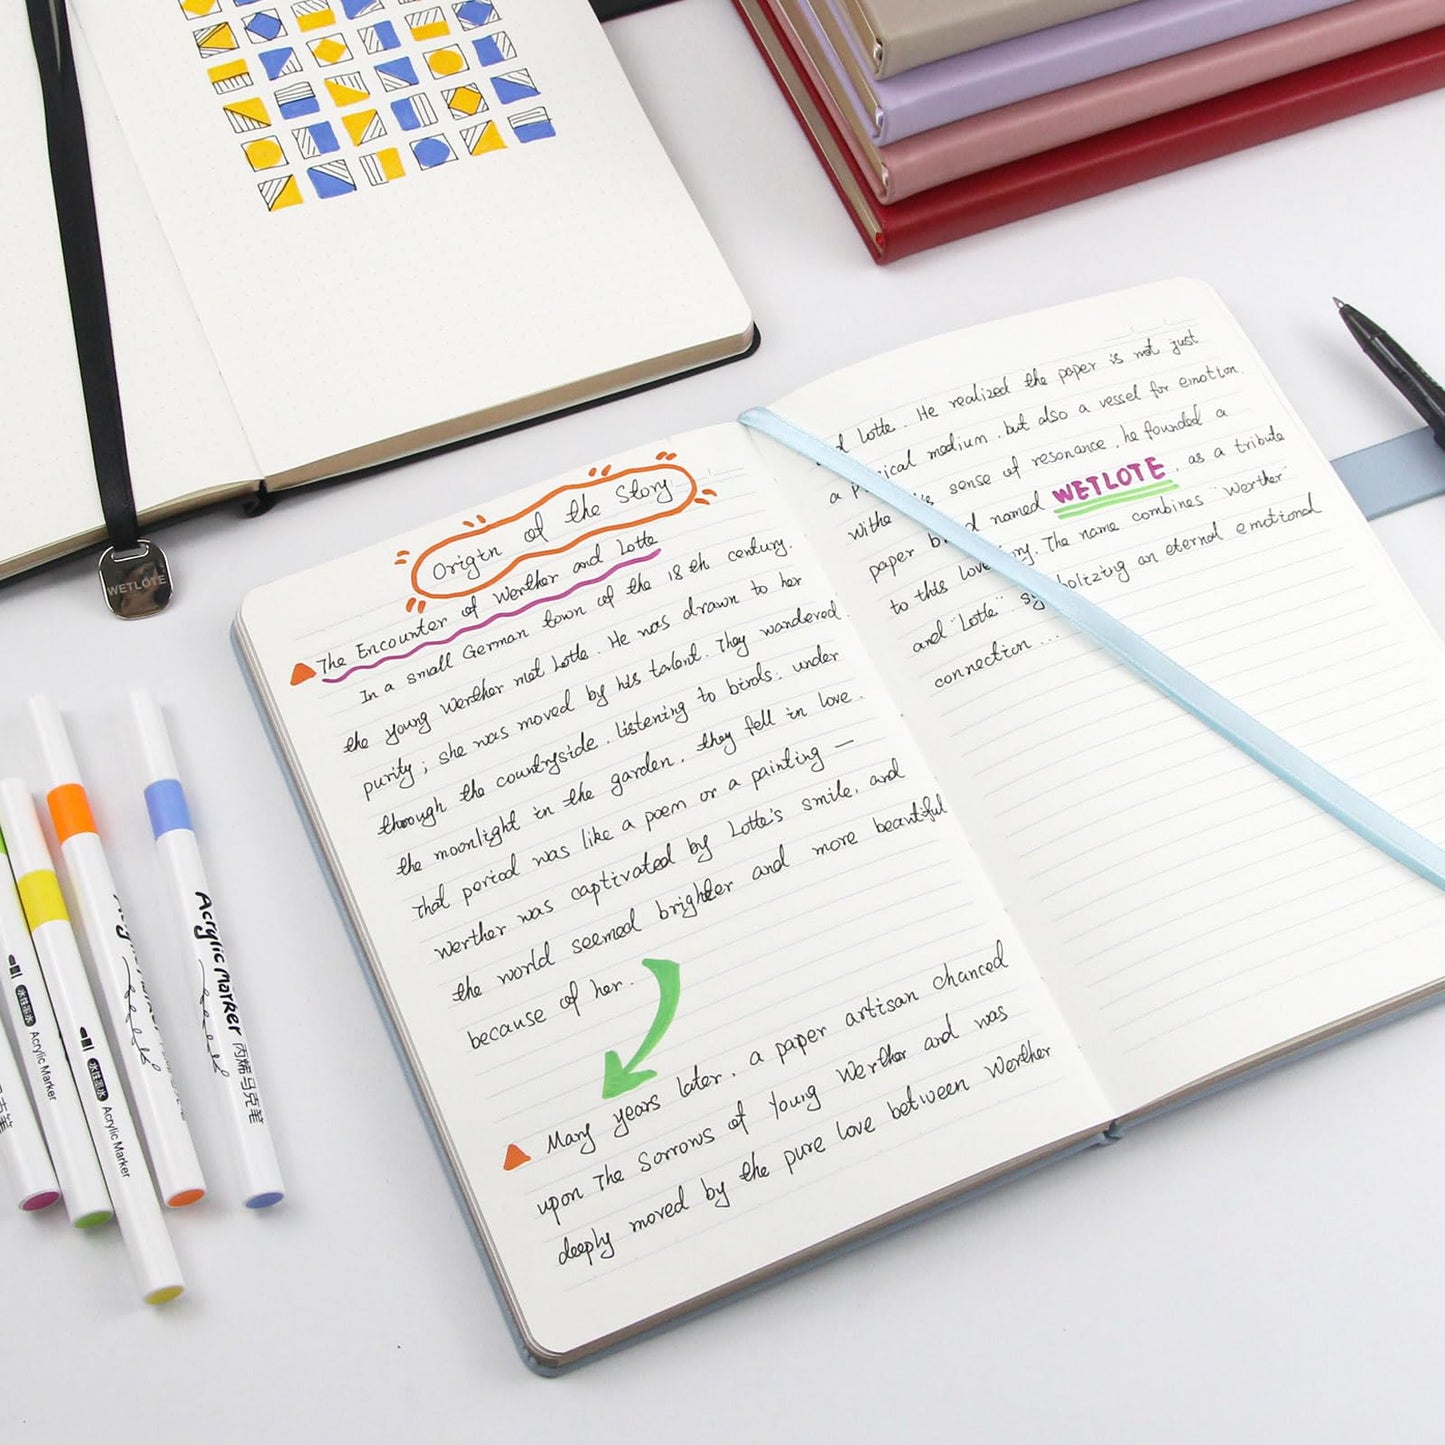 Origin of the Story
The Encounter of Werther and Lotte
In a small German town of the 18 th century.
the young Werther met Lotte. He was drawn to her
purity; she was moved by his talent. They wandered
through the countryside. listening to birds. under
the moonlight in the garden. they fell in love.
That period was like a poem or a painting —
Werther was captivated by Lotte's smile, and
the world seemed brighter and more beautiful
because of her.
Many years later. a paper artisan chanced
upon The Sorrows of Young Werther and was
deeply moved by the pure love between Werther
Lotte. He realized the paper is not just
a medium. but also a vessel for emotion.
sense of resonance. he founded a
paper named WETLOTE. as a tribute
to this love. The name combines "Werther"
and "Lotte". an eternal emotional
connection ...
WETLOTE
Acrylic Marker
Acrylic Marker
Acrylic Marker 丙烯马克笔